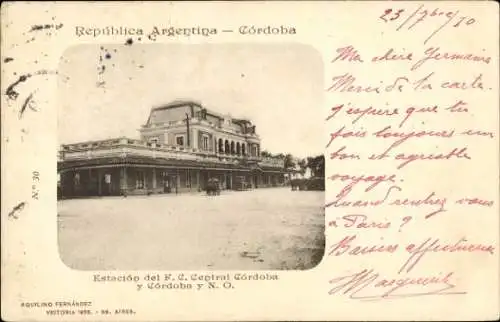 República Argentina - Córdoba
23/7bre/10
Ma chère Germaine
Merci de la carte.
j'espère que tu
fais toujours un
bon et agréable
voyage.
Quand rentrez vous
à Paris ?
Baisers affectueux
Marguerite
N.º 30
Estación del F. C. Central Córdoba
y Córdoba y N. O.
AQUILINO FERNÁNDEZ
VICTORIA - BS. AIRES.